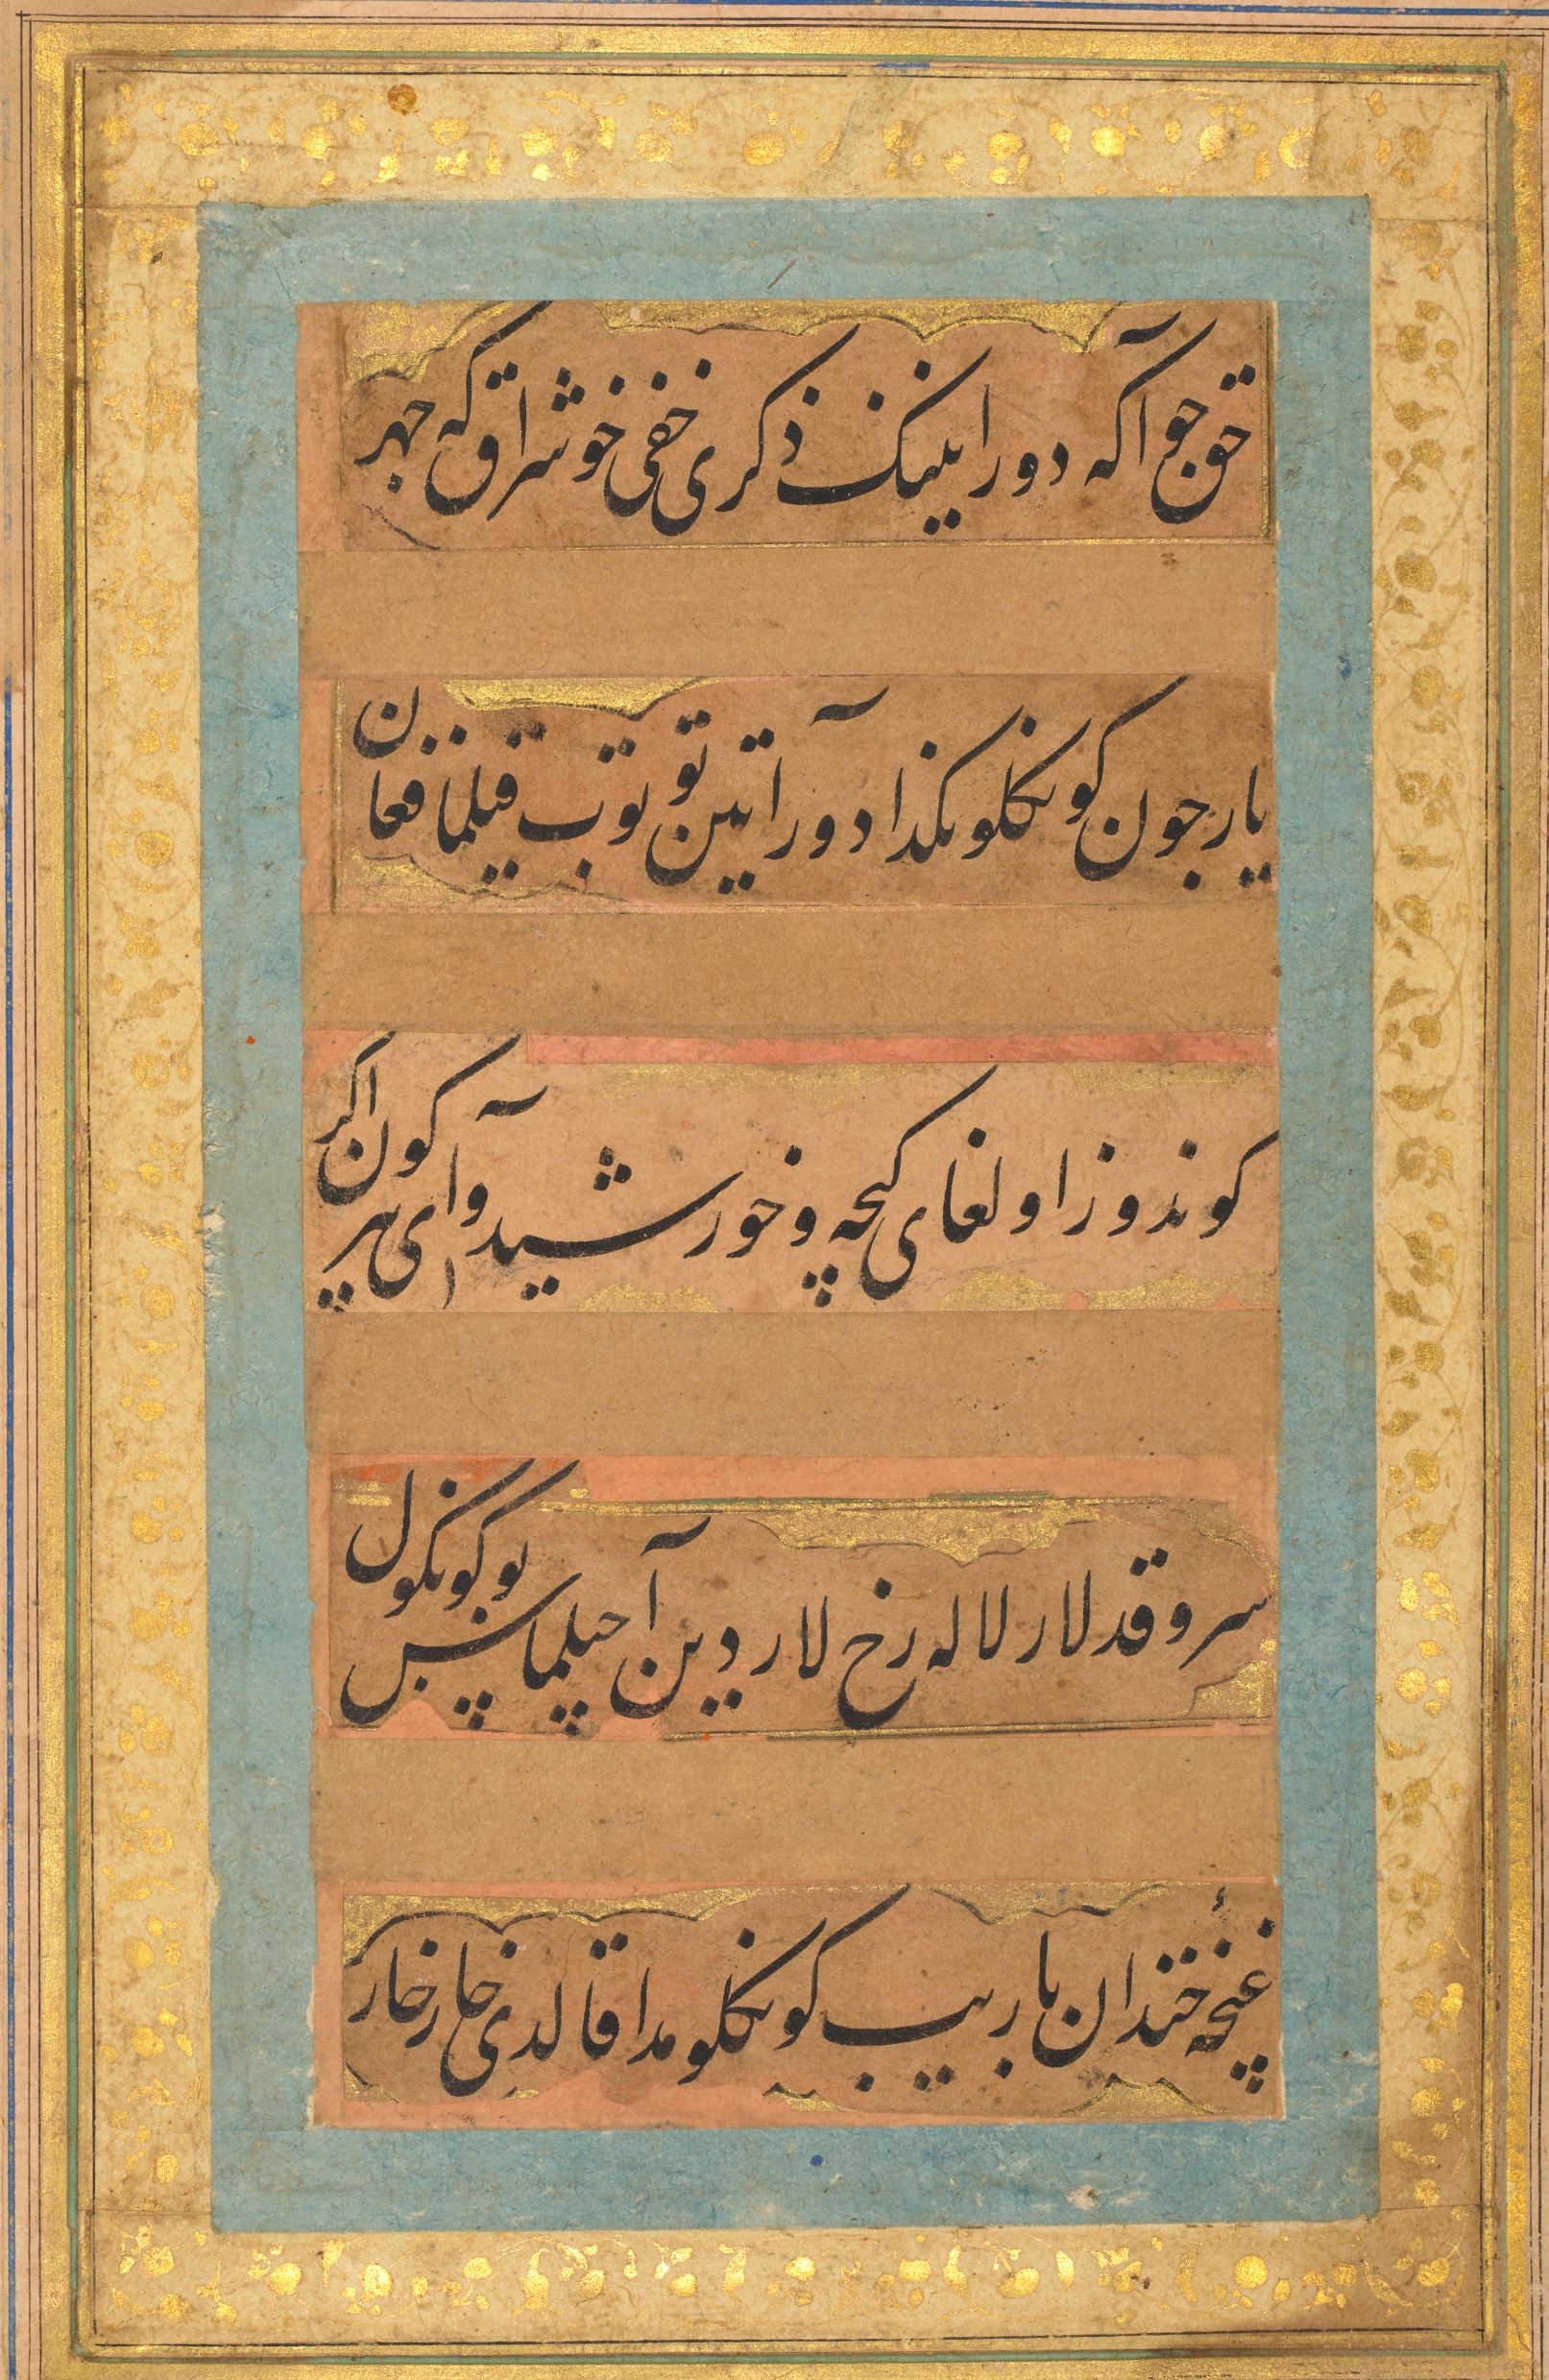 حق جو آکه دور انینک ذکری خفی خوشراق که جهر
یار چون کونکلونکدا دور ایتین توتوب قیلما فغان
کوندوز اولغای کیچه و خورشید وای هر کون اکر
سرو قدلار لاله رخ لار دین آچیلماس بو کونکول
غنچهٔ خندان باریب کونکلومدا قالدی خار خار